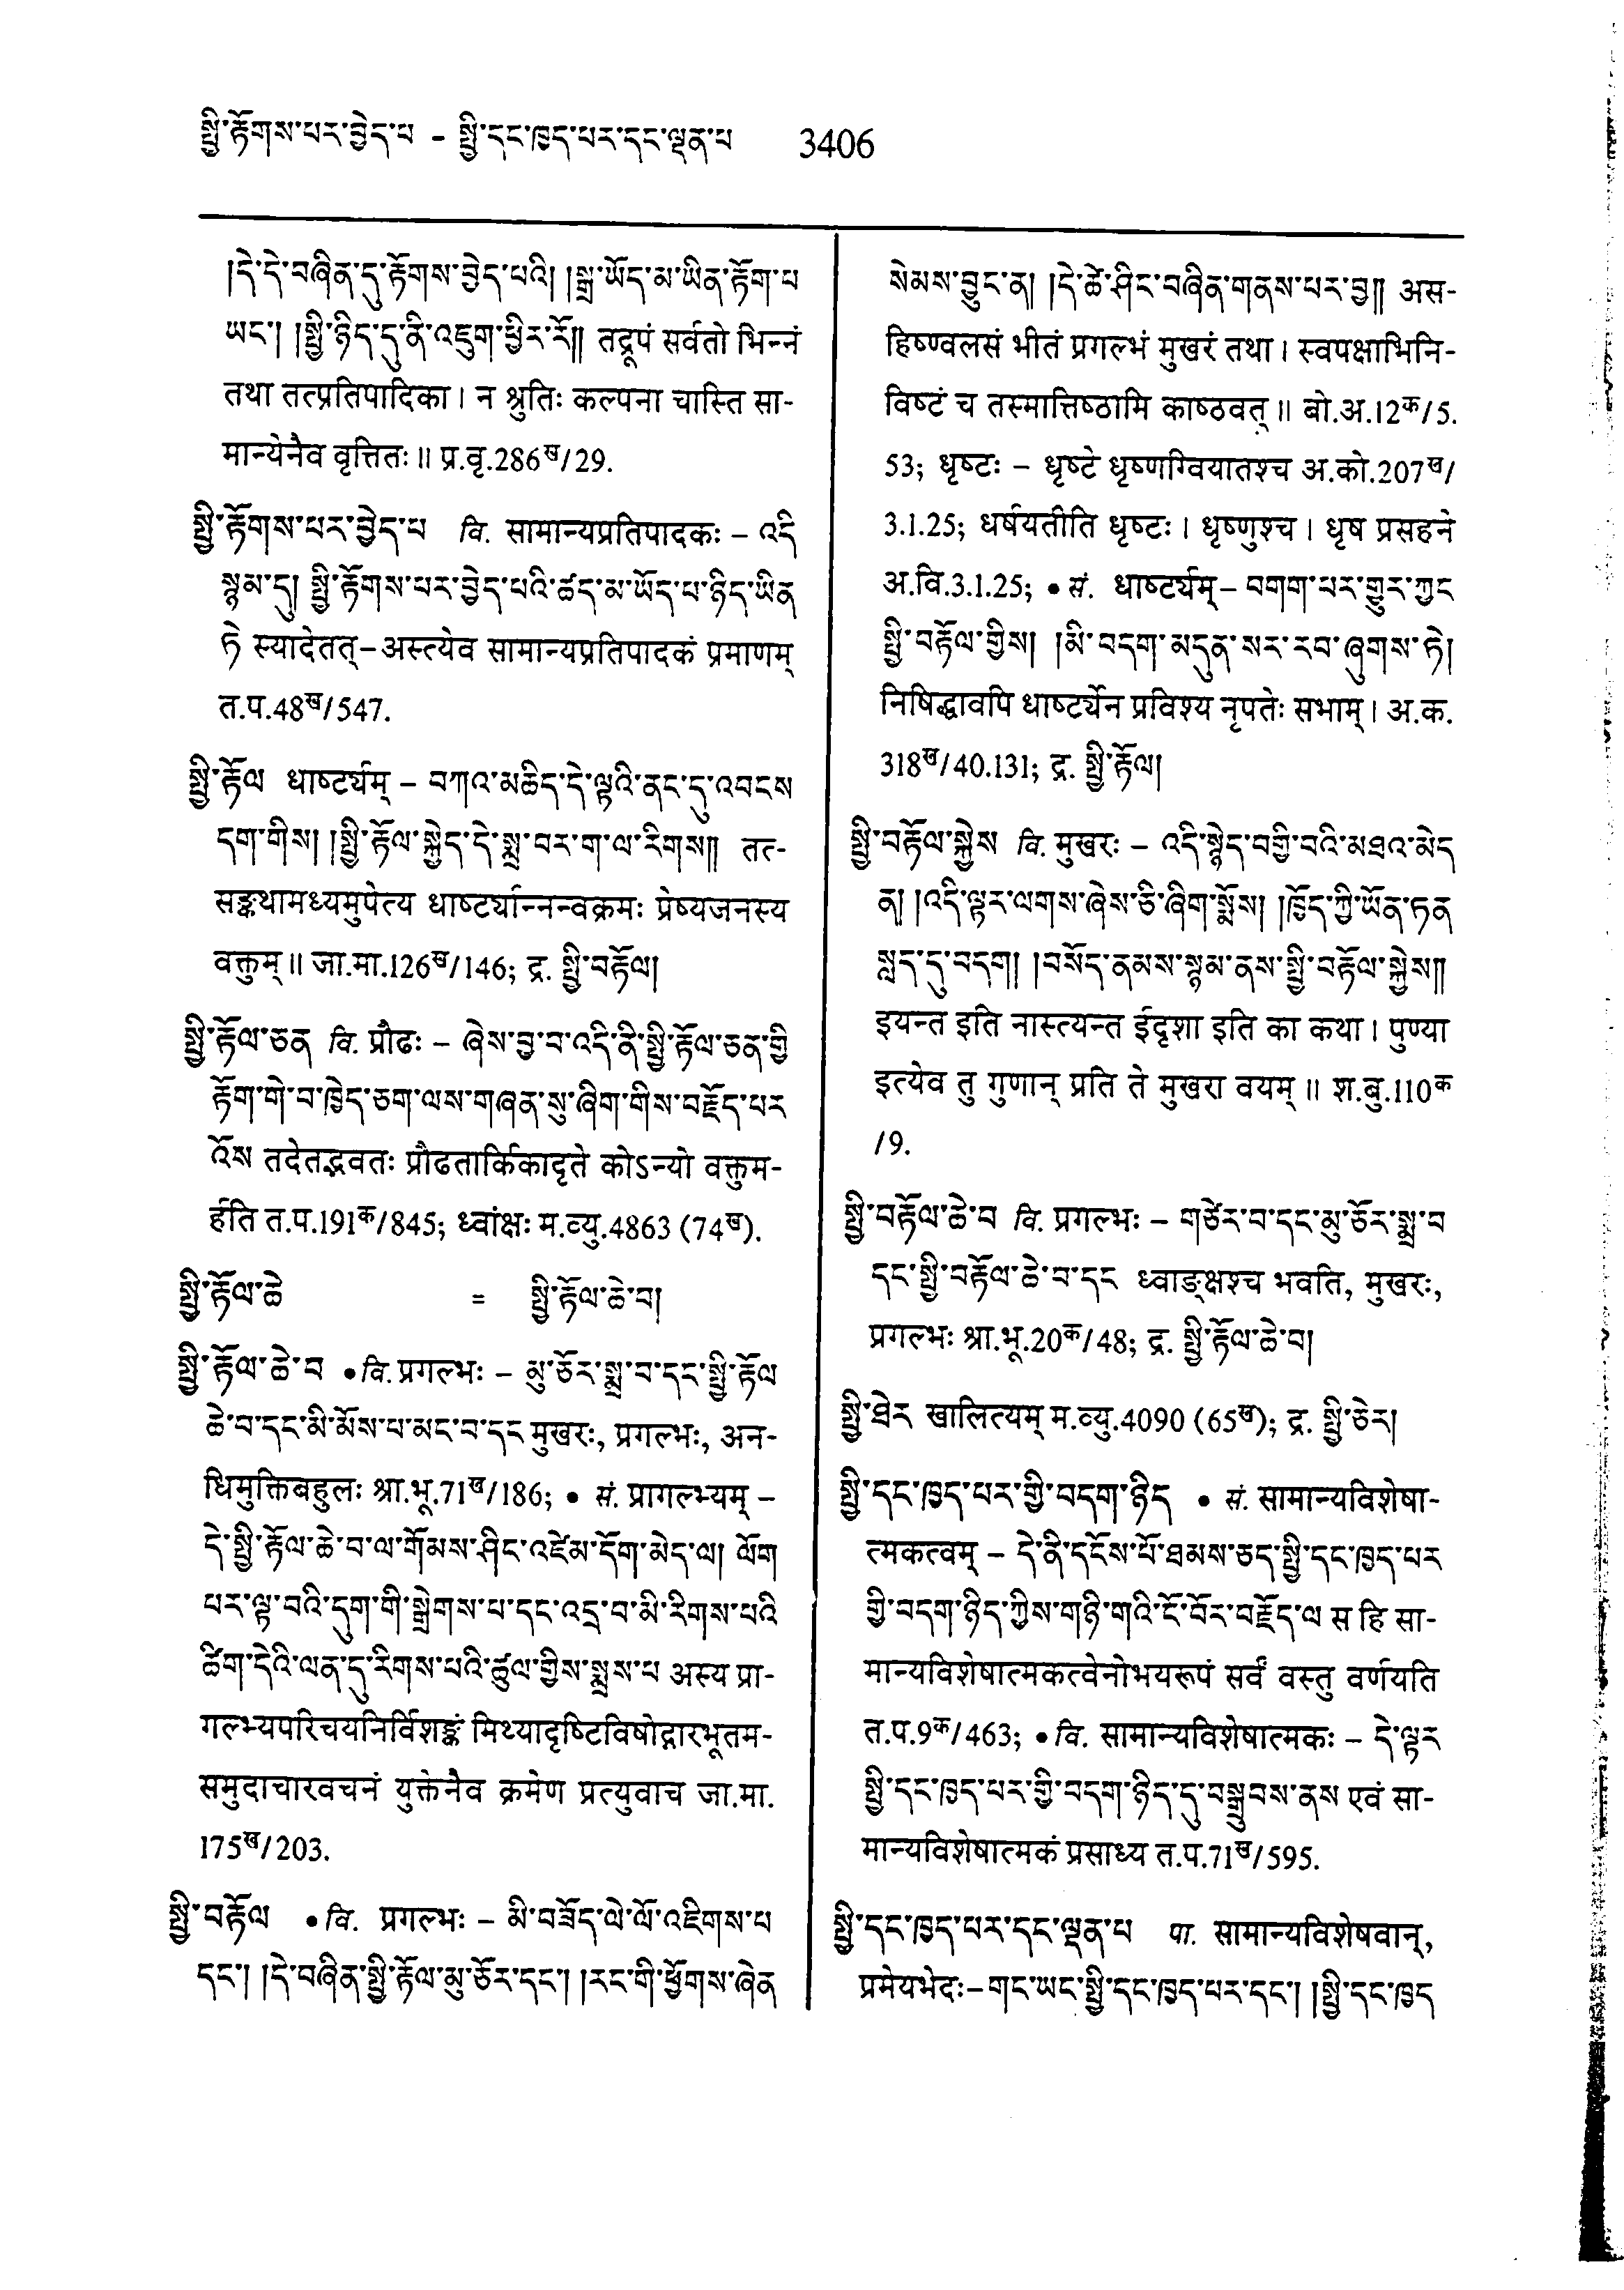 སྤྱི་རྟོགས་པར་བྱེད་པ - སྤྱི་དང་ཁྱད་པར་དང་ལྡན་པ 3406
།དེ་དེ་བཞིན་དུ་རྟོགས་བྱེད་པའི། །སྒྲ་ཡོད་མ་ཡིན་རྟོག་པ
ཡང་། །སྤྱི་ཉིད་དུ་ནི་འཇུག་ཕྱིར་རོ།། तद्रूपं सर्वतो भिन्नं
तथा तत्प्रतिपादिका। न श्रुतिः कल्पना चास्ति सा-
मान्येनैव वृत्तितः॥ प्र.वृ.286ख/29.
སྤྱི་རྟོགས་པར་བྱེད་པ वि. सामान्यप्रतिपादकः – འདི
སྙམ་དུ། སྤྱི་རྟོགས་པར་བྱེད་པའི་ཚད་མ་ཡོད་པ་ཉིད་ཡིན
ཏེ स्यादेतत्–अस्त्येव सामान्यप्रतिपादकं प्रमाणम्
त.प.48ख/547.
སྤྱི་རྟོལ धाष्टर्यम् – བཀའ་མཆིད་དེ་ལྟའི་ནང་དུ་འབངས
དག་གིས། །སྤྱི་རྟོལ་སྐྱེད་དེ་སྨྲ་བར་ག་ལ་རིགས།། तत्-
सङ्कथामध्यमुपेत्य धाष्टर्यान्नन्वक्रमः प्रेष्यजनस्य
वक्तुम्॥ जा.मा.126ख/146; द्र. སྤྱི་བརྟོལ།
སྤྱི་རྟོལ་ཅན वि. प्रौढः – ཞེས་བྱ་བ་འདི་ནི་སྤྱི་རྟོལ་ཅན་གྱི
རྟོག་གེ་བ་ཁྱེད་ཅག་ལས་གཞན་སུ་ཞིག་གིས་བརྗོད་པར
འོས तदेतद्भवतः प्रौढतार्किकादृते कोऽन्यो वक्तुम-
र्हति त.प.191क/845; ध्वांक्षः म.व्यु.4863 (74ख).
སྤྱི་རྟོལ་ཆེ = སྤྱི་རྟོལ་ཆེ་བ།
སྤྱི་རྟོལ་ཆེ་བ •वि. प्रगल्भः – མུ་ཅོར་སྨྲ་བ་དང་སྤྱི་རྟོལ
ཆེ་བ་དང་མི་མོས་པ་མང་བ་དང मुखरः, प्रगल्भः, अन-
धिमुक्तिबहुलः श्रा.भू.71ख/186; • सं. प्रागल्भ्यम् –
དེ་སྤྱི་རྟོལ་ཆེ་བ་ལ་གོམས་ཤིང་འཛེམ་དོག་མེད་ལ། ལོག
པར་ལྟ་བའི་དུག་གི་སྒྲེགས་པ་དང་འདྲ་བ་མི་རིགས་པའི
ཚིག་དེའི་ལན་དུ་རིགས་པའི་ཚུལ་གྱིས་སྨྲས་པ अस्य प्रा-
गल्भ्यपरिचयनिर्विशङ्कं मिथ्यादृष्टिविषोद्गारभूतम-
समुदाचारवचनं युक्तेनैव क्रमेण प्रत्युवाच जा.मा.
175ख/203.
སྤྱི་བརྟོལ •वि. प्रगल्भः – མི་བཟོད་ལེ་ལོ་འཇིགས་པ
དང་། །དེ་བཞིན་སྤྱི་རྟོལ་མུ་ཅོར་དང་། །རང་གི་ཕྱོགས་ཞེན
སེམས་བྱུང་ན། །དེ་ཚེ་ཤིང་བཞིན་གནས་པར་བྱ།། अस-
हिष्ण्वलसं भीतं प्रगल्भं मुखरं तथा। स्वपक्षाभिनि-
विष्टं च तस्मात्तिष्ठामि काष्ठवत्॥ बो.अ.12क/5.
53; धृष्टः – धृष्टे धृष्णग्वियातश्च अ.को.207ख/
3.1.25; धर्षयतीति धृष्टः। धृष्णुश्च। धृष प्रसहने
अ.वि.3.1.25; • सं. धाष्टर्यम्– བགག་པར་གྱུར་ཀྱང
སྤྱི་བརྟོལ་གྱིས། །མི་བདག་མདུན་སར་རབ་ཞུགས་ཏེ།
निषिद्धावपि धाष्टर्येन प्रविश्य नृपतेः सभाम्। अ.क.
318ख/40.131; द्र. སྤྱི་རྟོལ།
སྤྱི་བརྟོལ་སྐྱེས वि. मुखरः – འདི་སྙེད་བགྱི་བའི་མཐའ་མེད
ན། །འདི་ལྟར་ལགས་ཞེས་ཅི་ཞིག་སྨོས། །ཁྱོད་ཀྱི་ཡོན་ཏན
སླད་དུ་བདག། །བསོད་ནམས་སྙམ་ནས་སྤྱི་བརྟོལ་སྐྱེས།།
इयन्त इति नास्त्यन्त ईदृशा इति का कथा। पुण्या
इत्येव तु गुणान् प्रति ते मुखरा वयम्॥ श.बु.110क
/9.
སྤྱི་བརྟོལ་ཆེ་བ वि. प्रगल्भः – གཙེར་བ་དང་མུ་ཅོར་སྨྲ་བ
དང་སྤྱི་བརྟོལ་ཆེ་བ་དང ध्वाङ्क्षश्च भवति, मुखरः,
प्रगल्भः श्रा.भू.20क/48; द्र. སྤྱི་རྟོལ་ཆེ་བ།
སྤྱི་ཐེར खालित्यम् म.व्यु.4090 (65ख); द्र. སྤྱི་ཅེར།
སྤྱི་དང་ཁྱད་པར་གྱི་བདག་ཉིད • सं. सामान्यविशेषा-
त्मकत्वम् – དེ་ནི་དངོས་པོ་ཐམས་ཅད་སྤྱི་དང་ཁྱད་པར
གྱི་བདག་ཉིད་ཀྱིས་གཉི་གའི་ངོ་བོར་བརྗོད་ལ स हि सा-
मान्यविशेषात्मकत्वेनोभयरूपं सर्वं वस्तु वर्णयति
त.प.9क/463; •वि. सामान्यविशेषात्मकः – དེ་ལྟར
སྤྱི་དང་ཁྱད་པར་གྱི་བདག་ཉིད་དུ་བསྒྲུབས་ནས एवं सा-
मान्यविशेषात्मकं प्रसाध्य त.प.71ख/595.
སྤྱི་དང་ཁྱད་པར་དང་ལྡན་པ पा. सामान्यविशेषवान्,
प्रमेयभेदः–གང་ཡང་སྤྱི་དང་ཁྱད་པར་དང་། །སྤྱི་དང་ཁྱད